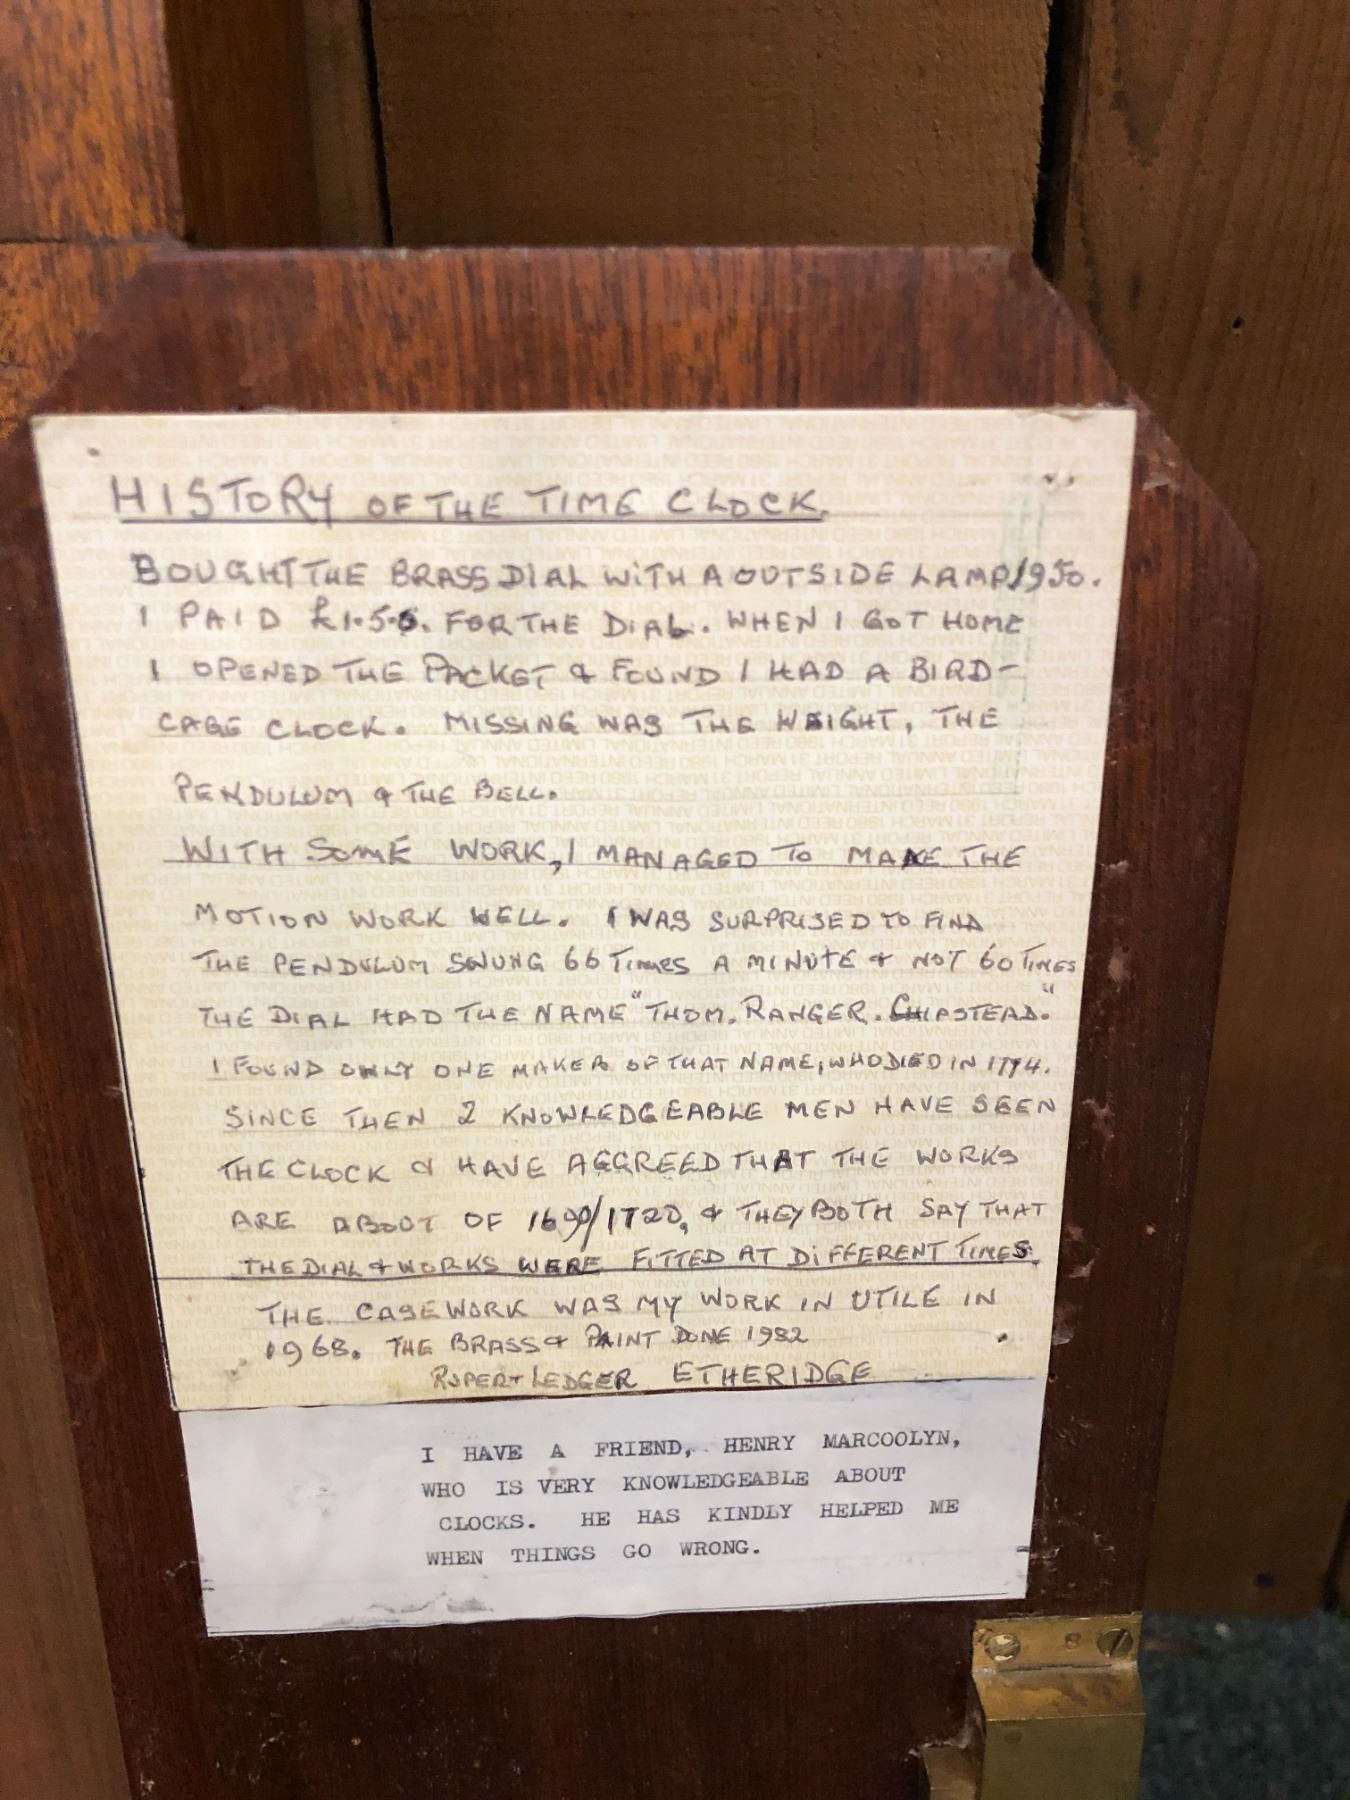 HISTORY OF THE TIME CLOCK.
BOUGHT THE BRASS DIAL WITH A OUTSIDE LAMP 1950.
I PAID £1.5.6. FOR THE DIAL. WHEN I GOT HOME
I OPENED THE PACKET & FOUND I HAD A BIRD-
CAGE CLOCK. MISSING WAS THE WEIGHT, THE
PENDULUM & THE BELL.
WITH SOME WORK, I MANAGED TO MAKE THE
MOTION WORK WELL. I WAS SURPRISED TO FIND
THE PENDULUM SWUNG 66 TIMES A MINUTE & NOT 60 TIMES
THE DIAL HAD THE NAME "THOM. RANGER. CHIPSTEAD."
I FOUND ONLY ONE MAKER OF THAT NAME, WHO DIED IN 1774.
SINCE THEN 2 KNOWLEDGEABLE MEN HAVE SEEN
THE CLOCK & HAVE AGGREED THAT THE WORKS
ARE ABOUT OF 1690/1720, & THEY BOTH SAY THAT
THE DIAL & WORKS WERE FITTED AT DIFFERENT TIMES.
THE CASEWORK WAS MY WORK IN UTILE IN
1968. THE BRASS & PAINT DONE 1982
RUPERT LEDGER ETHERIDGE
I HAVE A FRIEND, HENRY MARCOOLYN,
WHO IS VERY KNOWLEDGEABLE ABOUT
CLOCKS. HE HAS KINDLY HELPED ME
WHEN THINGS GO WRONG.